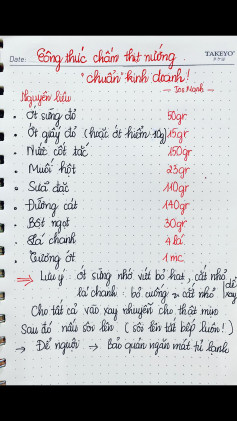 Date:
TAKEYO
Công thức chấm thịt nướng
"chuẩn" kinh doanh!
Nguyên liệu
• Ớt sừng đỏ 50gr
• Ớt giấy đỏ (hoặc ớt hiểm 10g) 15gr
• Nước cốt tắc 150gr
• Muối hột 23gr
• Sữa đặc 110gr
• Đường cát 140gr
• Bột ngọt 30gr
• Lá chanh 4 lá
• Tương ớt 1 mc
⇒ Lưu ý: Ớt sừng nhớ vứt bỏ hạt, cắt nhỏ để
lá chanh: bỏ cuống, cắt nhỏ xay
Cho tất cả vào xay nhuyễn cho thật mịn
Sau đó nấu sôi lên (sôi lên tắt bếp luôn!)
→ Để nguội → Bảo quản ngăn mát tủ lạnh